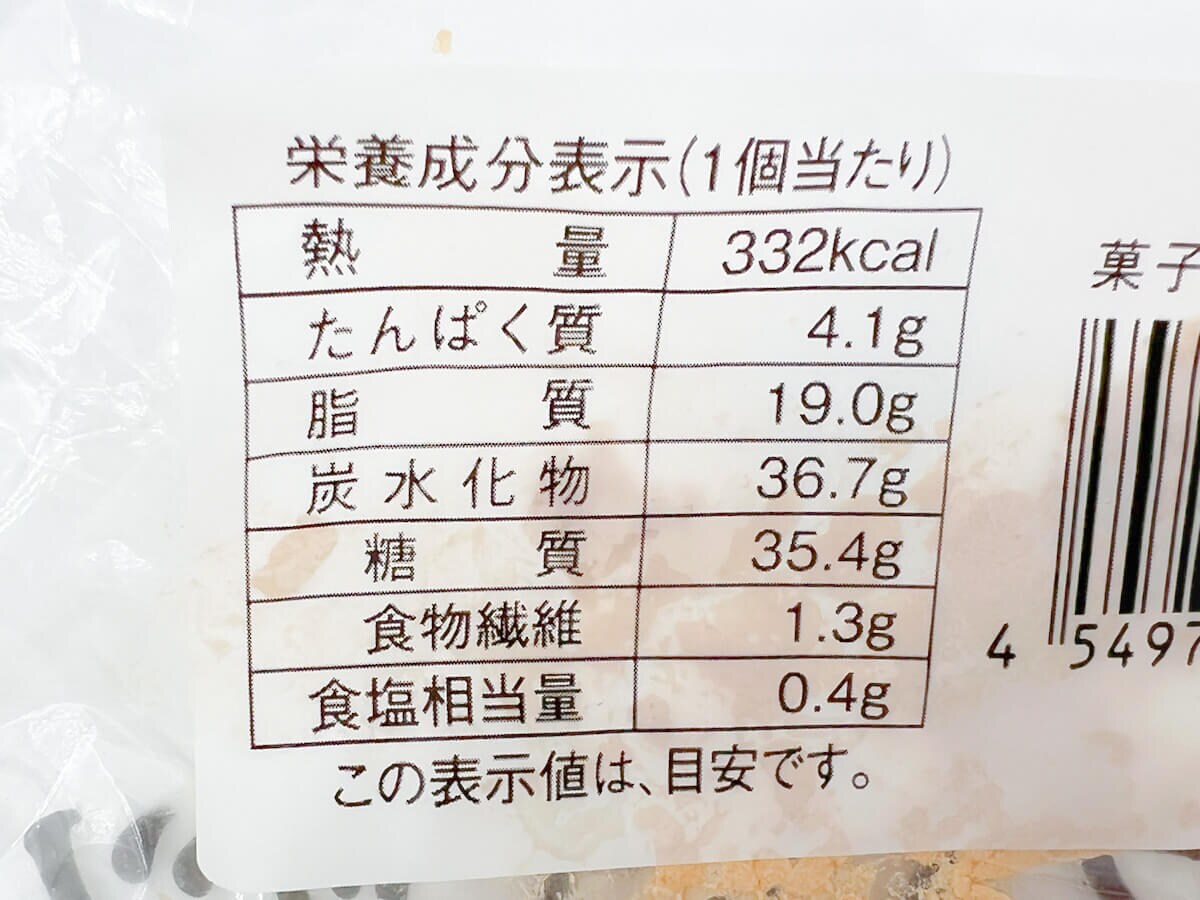 栄養成分表示(1個当たり)
熱量 332kcal
たんぱく質 4.1g
脂質 19.0g
炭水化物 36.7g
糖質 35.4g
食物繊維 1.3g
食塩相当量 0.4g
この表示値は、目安です。
菓子
4 5497